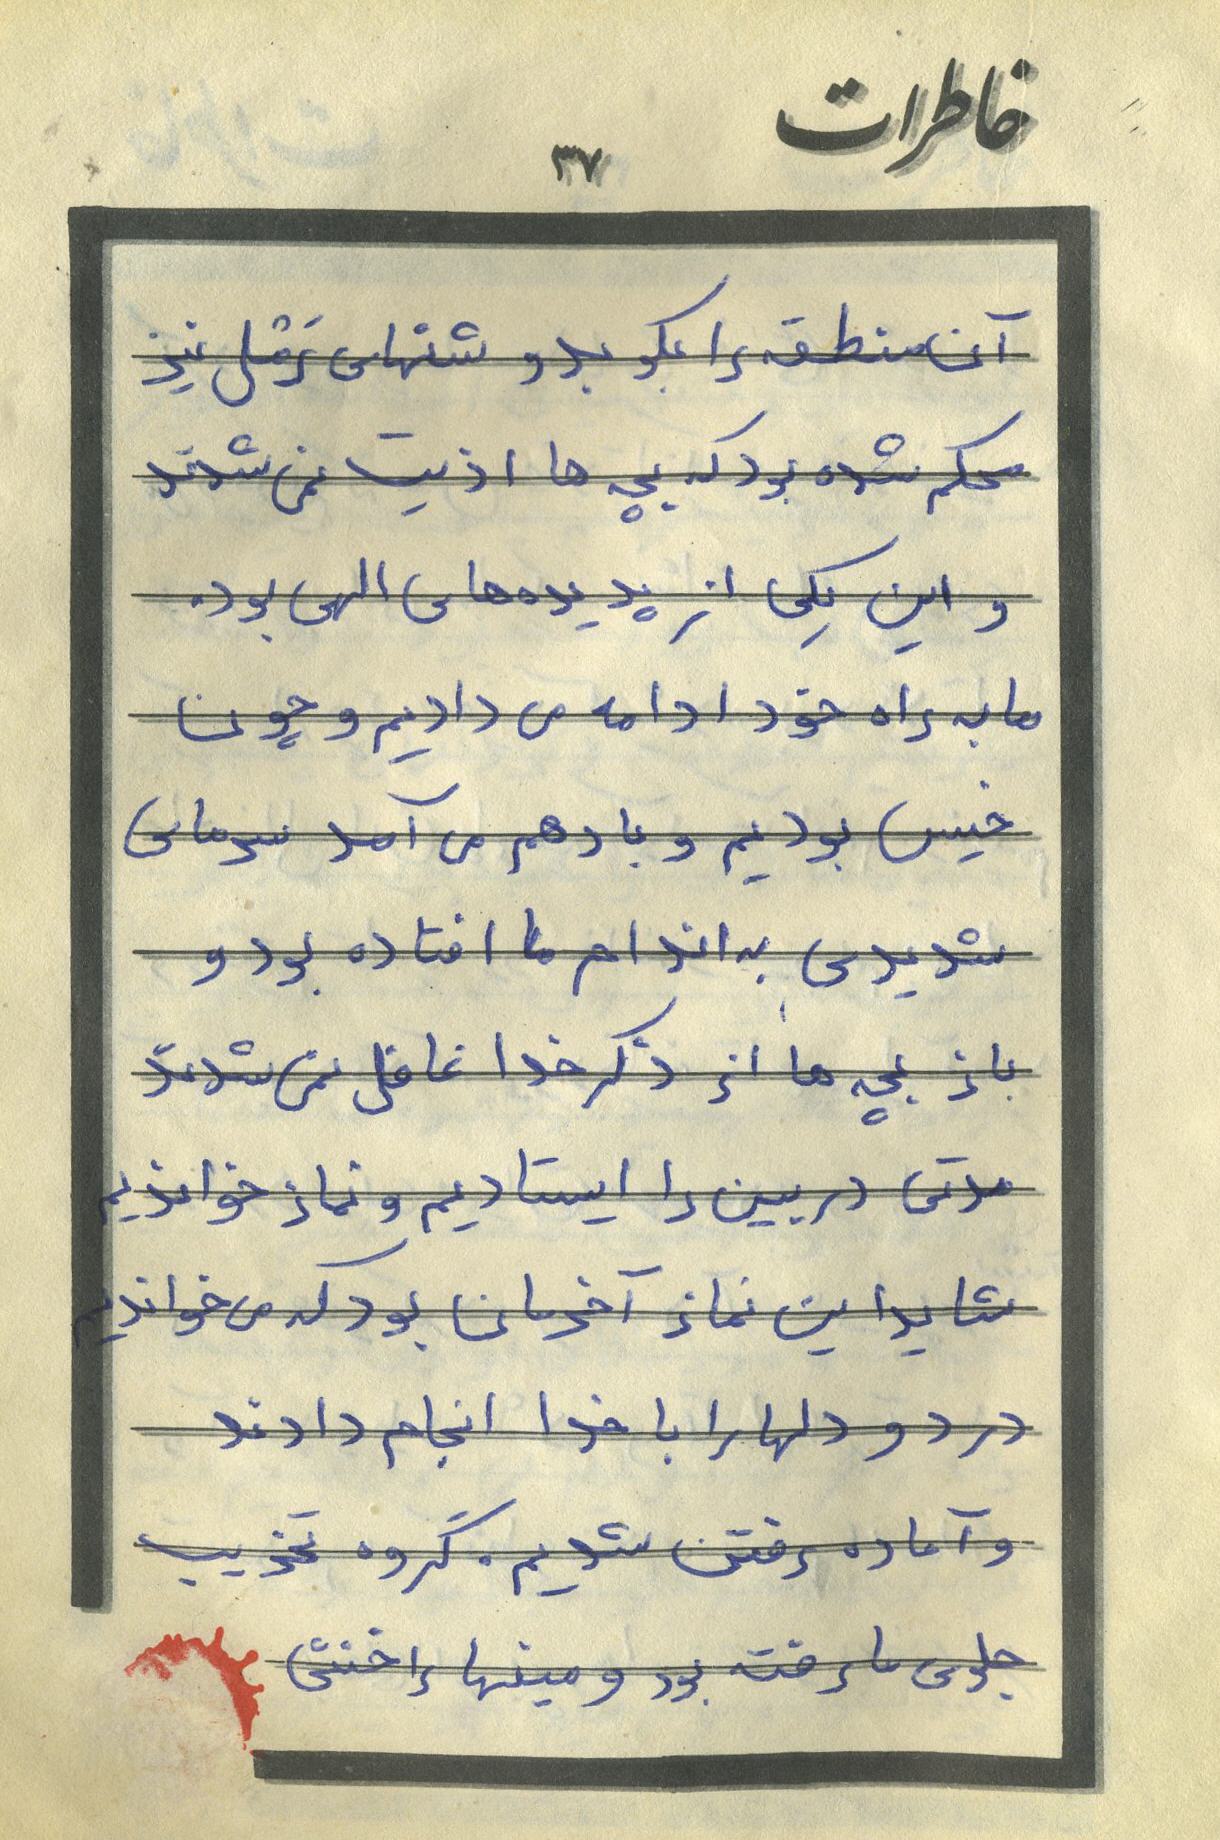 خاطرات
۳۷
آن منطقه را بکوبد و شنهای رَمْل نیز
محکم شده بود که بچه ها اذیت نمی شدند
و این یکی از پدیده‌های الهی بود.
ما به راه خود ادامه می دادیم و چون
خیس بودیم و باد هم می آمد سرمای
شدیدی به اندام ما افتاده بود و
باز بچه ها از ذکر خدا غافل نمی شدند
مدتی در بین را ایستادیم و نماز خواندیم
شاید این نماز آخرمان بود که می خواندیم
درد و دلها را با خدا انجام دادند
و آماده رفتن شدیم. گروه تخریب
جلوی ما رفته بود و مینها را خنثی